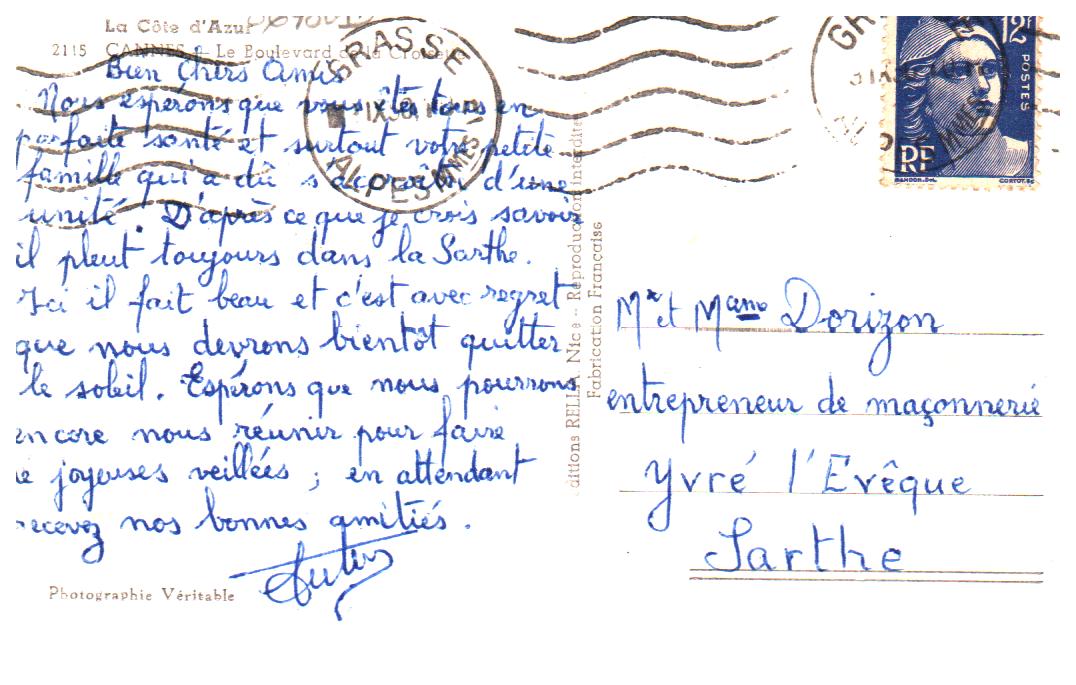 La Côte d'Azur
2115 CANNES - Le Boulevard de la Croisette
Bien Chers Amis
Nous espérons que vous êtes tous en
parfaite santé et surtout votre petite
famille qui a dû s'accroître d'une
unité. D'après ce que je crois savoir
il pleut toujours dans la Sarthe.
Ici il fait beau et c'est avec regret
que nous devrons bientôt quitter
le soleil. Espérons que nous pourrons
encore nous réunir pour faire
de joyeuses veillées ; en attendant
recevez nos bonnes amitiés.
Photographie Véritable
GRASSE
ALPES MMES
Editions RELLA Nice - Reproduction interdite
Fabrication Française
GR
12F
POSTES
RF
GANDON.DEL
CORTOT.SC
Mr et Mame Dorizon
entrepreneur de maçonnerie
Yvré l'Evêque
Sarthe